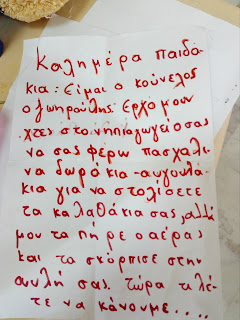 Καλημέρα παιδά
κια. Είμαι ο κούνελος
ο ζωηρούλης. Ερχόμουν
χτες στο νηπιαγωγείο σας
να σας φέρω πασχαλι
να δωράκια-αυγουλά
κια για να στολίσετε
τα καλαθάκια σας, αλλά
μου τα πήρε ο αέρας
και τα σκόρπισε στην
αυλή σας. τώρα τι λέ
τε να κάνουμε....